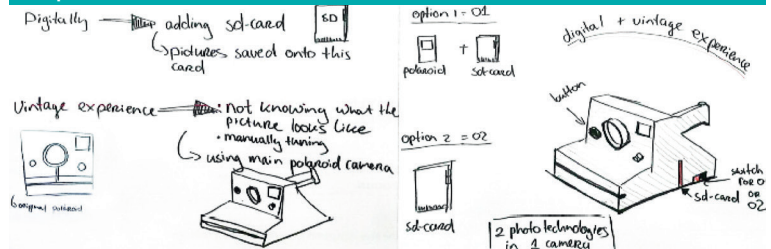 Digitally → adding sd-card
SD
pictures saved onto this
card
Vintage experience → : not knowing what the
picture looks like
• manually tuning
using main polaroid camera
original polaroid
option 1 = O1
polaroid + sd-card
option 2 = O2
sd-card
digital + vintage experience
button
switch
for O1
or
O2
sd-card
2 photo technologies
in 1 camera